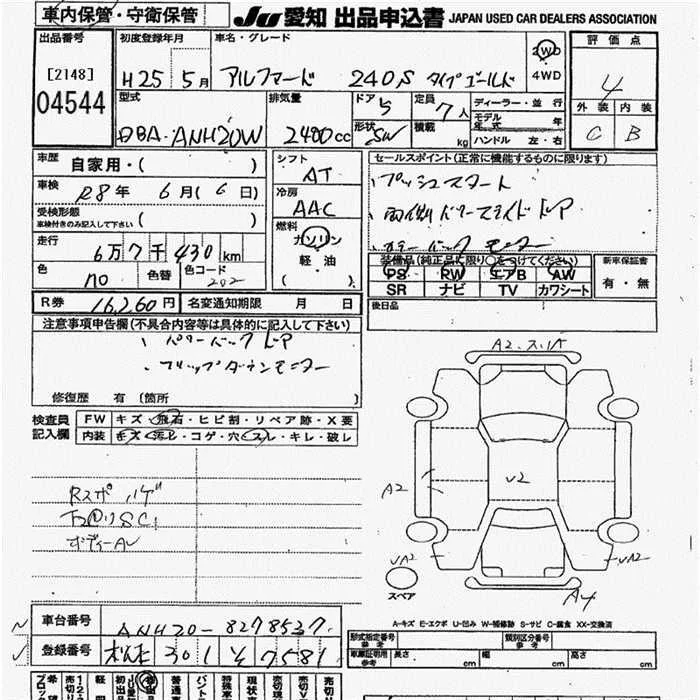 車内保管・守衛保管 JU 愛知 出品申込書 JAPAN USED CAR DEALERS ASSOCIATION
出品番号 初度登録年月 車名・グレード 2WD 4WD 評価点
[2148] H25 5月 アルファード 240S タイプゴールド 4
04544 型式 排気量 ドア 5 定員 7人 ディーラー・並行 外装 内装
DBA-ANH20W 2400cc 形状 SW 積載 kg モデル年式 年 ハンドル 左・右 C B
車歴 自家用・( ) シフト AT セールスポイント(正常に機能するものに限ります)
車検 R8年 6月(6日) 冷房 AAC ・プッシュスタート
受検形態 車検付きのみ記入して下さい ( ) 燃料 ガソリン ・両側パワースライドドア
走行 6万7千430km 軽油 ・カラーバックモニター
色 no 色替 色コード 202 ( )
装備品(純正品に限り○をつけてください) 新車保証書
PS RW エアB AW 有・無
SR ナビ TV カワシート
R券 16,260円 名変通知期限 月 日 後日品
注意事項申告欄(不具合内容等は具体的に記入して下さい)
・パワーバックドア
・フリップダウンモニター
修復歴 有 [箇所 ]
検査員記入欄 FW キズ・飛石・ヒビ割・リペア跡・X要
内装 キズ・汚レ・コゲ・穴・スレ・キレ・破レ
A2.スリキ
A2
U2
Rスポ ハゲ
ボディーAU
UA2
UA2
スペア
A4
A-キズ E-エクボ U-凹み W-補修跡 S-サビ C-腐食 XX-交換済
車台番号 ANH20-8278537
登録番号 松本 301 せ 7581
型式指定番号 参考 類別区分番号 参考
車庫証明用 参考 長さ cm 幅 cm 高さ cm